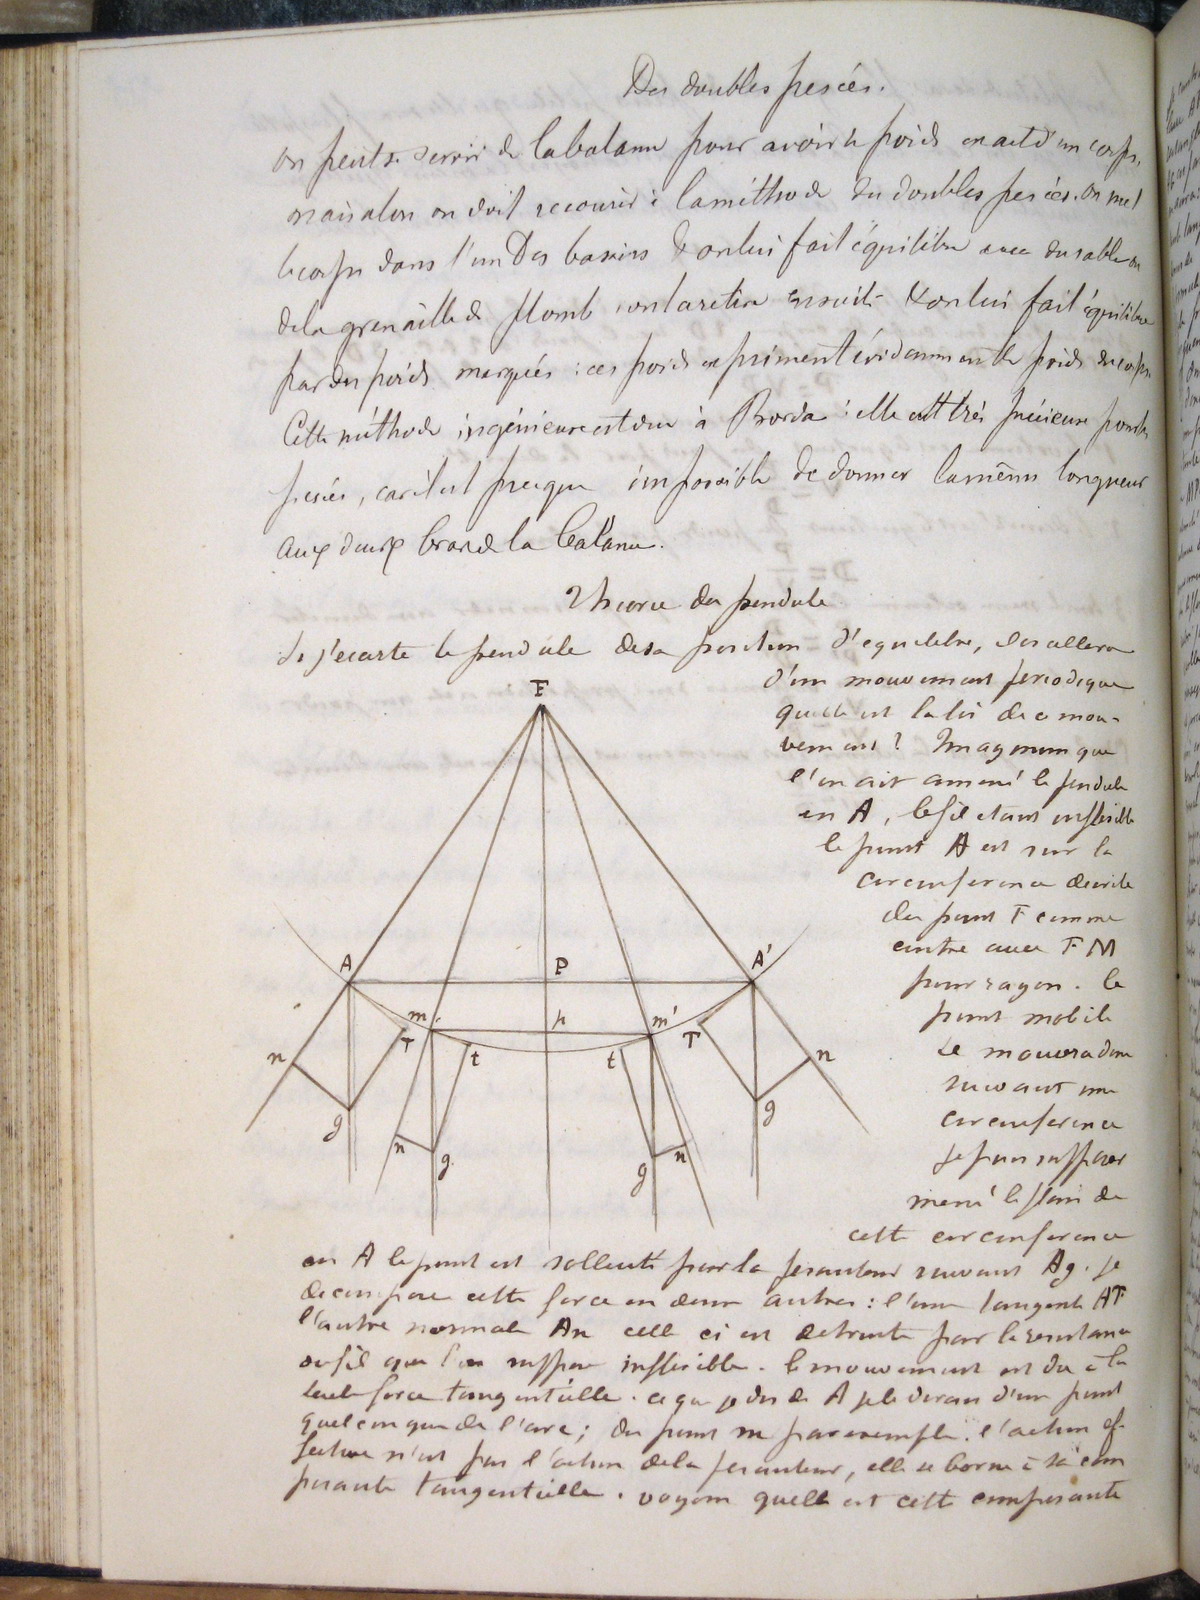 Des doubles pesées.
on peut se servir de la balance pour avoir le poids exact d'un corps,
mais alors on doit recourir à la méthode des doubles pesées. On met
le corps dans l'un Des bassins & on lui fait équilibre avec du sable ou
de la grenaille de plomb on la retire ensuite & on lui fait équilibre
par des poids marqués : ces poids expriment évidemment le poids du corps
Cette méthode ingénieuse est due à Borda : elle est très précieuse pour les
pesées, car il est presque impossible de donner la même longueur
aux deux bras de la balance.
Théorie du pendule
Si j'écarte le pendule de sa position d'equilibre, il oscillera
d'un mouvement periodique
quelle est la loi de ce mou-
vement ? Imaginons que
l'on ait amené le pendule
en A, le fil etant inflexible
le point A est sur la
circonference decrite
du point F comme
centre avec FM
pour rayon. le
point mobile
se mouvera donc
suivant une
circonference
je puis supposer
mené le plan de
cette circonference
F
A
P
A'
m
p
m'
T
t
t
T
n
n
g
n
g
g
n
g
en A le point est sollicité par la pesanteur suivant Ag. je
decompose cette force en deux autres : l'une tangente AT
l'autre normale An celle ci est detruite par la resistance
du fil que l'on suppose inflexible. le mouvement est du à la
seule force tangentielle. ce que je dis de A je le dirais d'un point
quelconque de l'arc ; du point m par exemple. l'action ef-
fective n'est pas l'action de la pesanteur, elle se borne à sa com
posante tangentielle. voyons quelle est cette composante